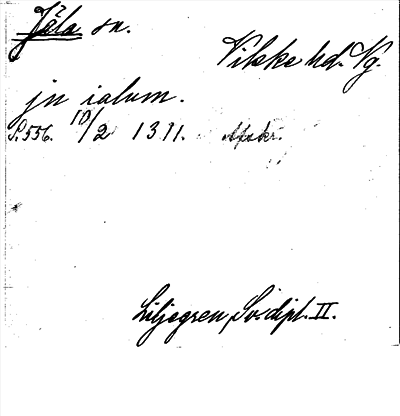 Jäla sn.
Vilske hd. Vg.
jn ialum.
S. 556. 10/2 1311. Afskr.
Liljegren, Sv. dipl. II.